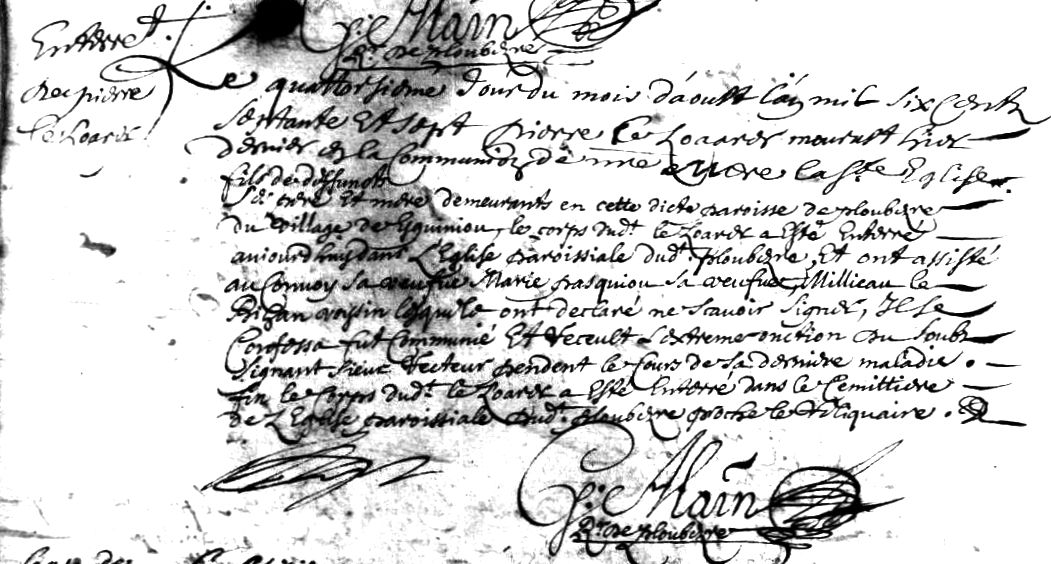 G: Alain
R.r De Ploubezre
Enterremt.
de pierre
le Loarer
Le quattorsiéme Jour du mois d'aoust l'an mil six Cents
septante Et sept pierre Le Loaarer mourust hier
dernier en la Communion de nre mere la Ste Eglise
fils de deffuncts
pere Et mere demeurants en cette dicte paroisse de ploubezre
du village de Esquiniou, le corps dudt le Loarer a Esté Enterré
aujourdhuy dans l'Eglise paroissiale dudt ploubezre, Et ont assisté
au Convoy sa veufve Marie pasquiou sa veufve, Millieau le
voysin lesquels ont declaré ne scavoir signer, Il se
Confessa fut Communié Et receult l'extreme onction du soub
signant sieur recteur pendent le Cours de sa derniere maladie.
fin le Corps dudt le Loarer a Esté Enterré dans le Cemittiere
de L'Eglise paroissiale dudt ploubezre proche le reliquaire.
G: Alain
R.r De Ploubezre